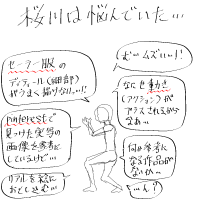 桜川は悩んでいた…
セーラー服の
ディティール(細部)
がうまく描けない…!
Pinterestで
見つけた実写の
画像を参考に
しているけど…
リアルを絵に
おとしこむ…
むっムズい…!!
なにせ動き
(アクション)が
プラスされるから
なぁ…
何か参考に
なる作品が
ないか…
…ん?